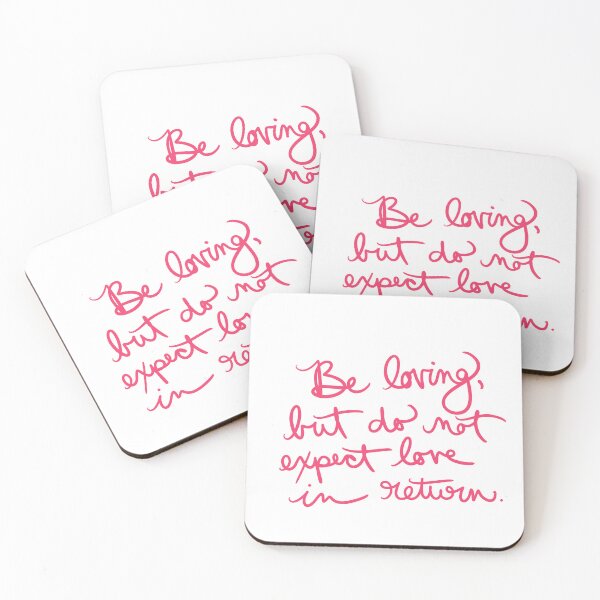 Be loving,
but do not
love
Be loving,
but do not
expect love
Be loving,
but do not
expect
in
Be loving,
but do not
expect love
in return.